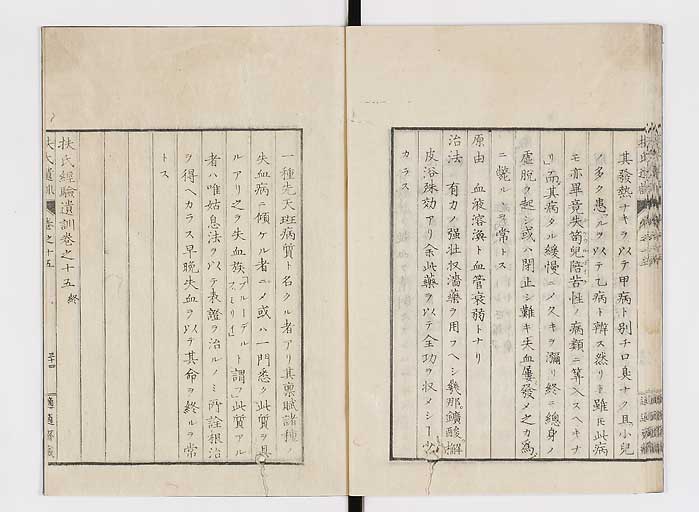 其發熱ナキヲ以テ甲病ト別チ口臭ナク且小兒
ノ多ク患ルヲ以テ乙病ト辨ス然リト雖𪜈此病
モ亦畢竟失苟兒陪苦性ノ病類ニ算入スヘキナ
リ而其病タル緩慢ニメ久キヲ彌リ終ニ總身ノ
虛脱ヲ起シ或ハ閉止シ難キ失血屢發メ之カ爲
ニ斃ルヽヲ常トス
原由 血液溶渙ト血管衰弱トナリ
治法 有力ノ强壮收濇藥ヲ用フヘシ幾那鑛酸檞
皮浴殊効アリ余此藥ヲ以テ全功ヲ収メシ
カラス
一種先天斑病質ト名クル者アリ其禀賦諸種ノ
失血病ニ傾ケル者ニメ或ハ一門悉ク此質ヲ具
ルアリ之ヲ失血族ブルーデルト謂フ此質アル
者ハ唯姑息法ヲ以テ表證ヲ治ルノミ所詮根治
ヲ得ヘカラス早晩失血ヲ以テ其命ヲ終ルヲ常
トス
扶氏經驗遺訓卷之十五終
扶氏遺訓 卷之十五